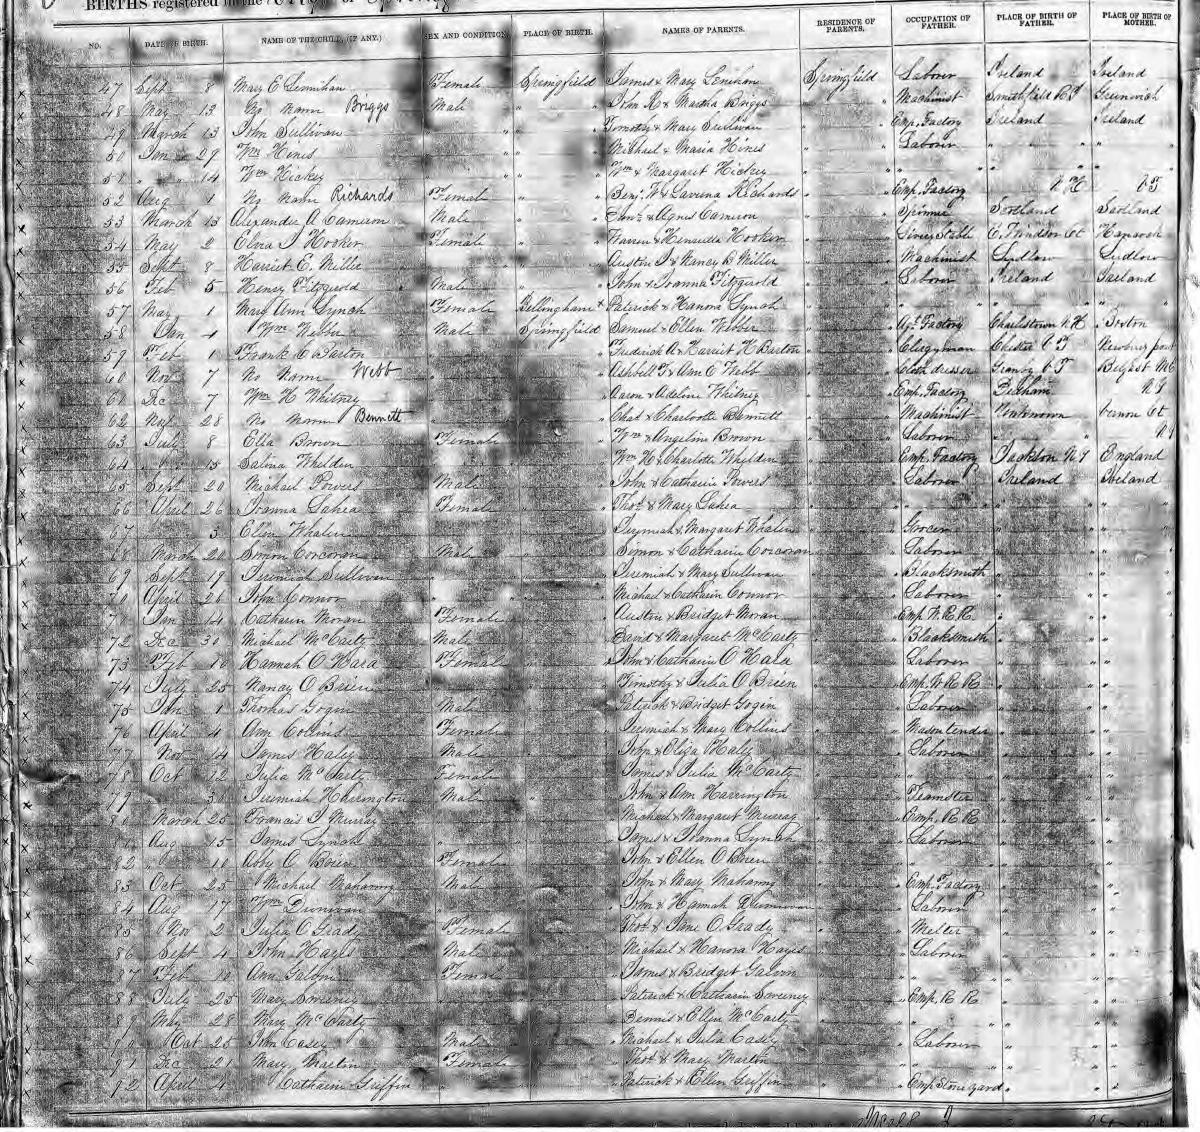 BIRTHS registered in the City of
NO. DATE OF BIRTH. NAME OF THE CHILD, (IF ANY.) SEX AND CONDITION PLACE OF BIRTH. NAMES OF PARENTS. RESIDENCE OF PARENTS. OCCUPATION OF FATHER. PLACE OF BIRTH OF FATHER. PLACE OF BIRTH OF MOTHER.
47 Sept 8 Mary E Lenihan Female Springfield James & Mary Lenihan Springfield Laborer Ireland Ireland
48 May 13 No Name Briggs Male " John R & Martha Briggs " Machinist Smithfield R I Greenwich
49 March 13 John Sullivan " " Timothy & Mary Sullivan " Emp. Factory Ireland Ireland
50 Jan 29 Wm Hines " " Michael & Maria Hines " Laborer " "
51 " 14 Wm Hickey " " Wm & Margaret Hickey " " " "
52 Aug 1 No Name Richards Female " Benj. W & Lavina Richards " Emp. Factory N H V T
53 March 13 Alexander A Cameron Male " & Agnes Cameron " Scotland Scotland
54 May 2 J Hooker Female " Warren & Henrietta Hooker " Livery Stable E. Windsor Ct Hanover
55 Sept 8 Harriet E. Miller " " Austin & Nancy B Miller " Machinist Ludlow Ludlow
56 Feb 5 Henry Fitzgerald Male " John & Joanna Fitzgerald " Laborer Ireland Ireland
57 May 1 Mary Ann Lynch Female Bellingham Patrick & Hanora Lynch " " " "
58 Jan 4 Wm Webber Male Springfield Samuel & Ellen Webber " Agt Factory Charlestown N H Boston
59 Feb 1 Frank Barton " " Frederick A & Harriet H Barton " Clergyman Chester V T Newbury port
60 Nov 7 No Name Webb " " Ashbell & Ann C Webb " Cloth dresser Granby C T Belfast Me
61 Dec 7 Wm H Whitney " " Aaron & Adeline Whitney " Emp. Factory N Y
62 May 28 No Name Bennett " " Chas & Charlotte Bennett " Machinist Unknown Vernon Ct
63 July 8 Ella Brown Female " Wm & Angeline Brown " Laborer " N Y
64 " 15 Salina Whelden " " Wm H & Charlotte Whelden " Emp. Factory Jackson N Y England
65 Sept 20 Michael Powers Male " John & Catharin Powers " Laborer Ireland Ireland
66 April 26 Joanna Lahea Female " Thos & Mary Lahea " " " "
67 " 3 Ellen Whalen " " Jeremiah & Margaret Whalen " Grocer " "
68 March 20 Simon Corcoran Male " Simon & Catharin Corcoran " Laborer " "
69 Sept 19 Jeremiah Sullivan " " Jeremiah & Mary Sullivan " Blacksmith " "
70 April 26 John Connor " " Michael & Catharin Connor " Laborer " "
71 Jan 14 Catharin Moran Female " Austin & Bridget Moran " Emp. W. R. R. " "
72 Dec 30 Michael McCarty Male " David & Margaret McCarty " Blacksmith " "
73 Feb 10 Hannah O Hara Female " John & Catharin O Hara " Laborer " "
74 July 25 Nancy O Brien " " Timothy & Julia O Brien " Emp. W. R. R. " "
75 Jan 1 Thomas Gogen Male " Patrick & Bridget Gogen " Laborer " "
76 April 4 Ann Collins Female " Jeremiah & Mary Collins " Mason tender " "
77 Nov 14 James Haley Male " John & Eliza Haley " Laborer " "
78 Oct 12 Julia McCarty Female " James & Julia McCarty " " " "
79 " 30 Jeremiah Harrington Male " John & Ann Harrington " Teamster " "
80 March 25 Francis J Murray " " Michael & Margaret Murray " Emp. R R " "
81 Aug 15 James Lynch " " James & Joanna Lynch " Laborer " "
82 " 10 Abby O Brien Female " John & Ellen O Brien " " " "
83 Oct 25 Michael Mahanny Male " John & Mary Mahanny " Emp. Factory " "
84 Aug 17 Wm Dunivan " " John & Hannah Dunivan " Laborer " "
85 Nov 2 Julia O Grady Female " Thos & Jane O Grady " Melter " "
86 Sept 4 John Hayes Male " Michael & Hanora Hayes " Laborer " "
87 Feb 10 Ann Galvin Female " James & Bridget Galvin " " " "
88 July 25 Mary Sweeney " " Patrick & Catharin Sweeney " Emp. R R " "
89 May 28 Mary McCarty " " Dennis & Ellen McCarty " " " "
90 Oct 25 John Casey Male " Michael & Julia Casey " Laborer " "
91 Dec 21 Mary Martin Female " Thos & Mary Martin " " " "
92 April 4 Catharin Griffin " " Patrick & Ellen Griffin " Emp Stone yard " "